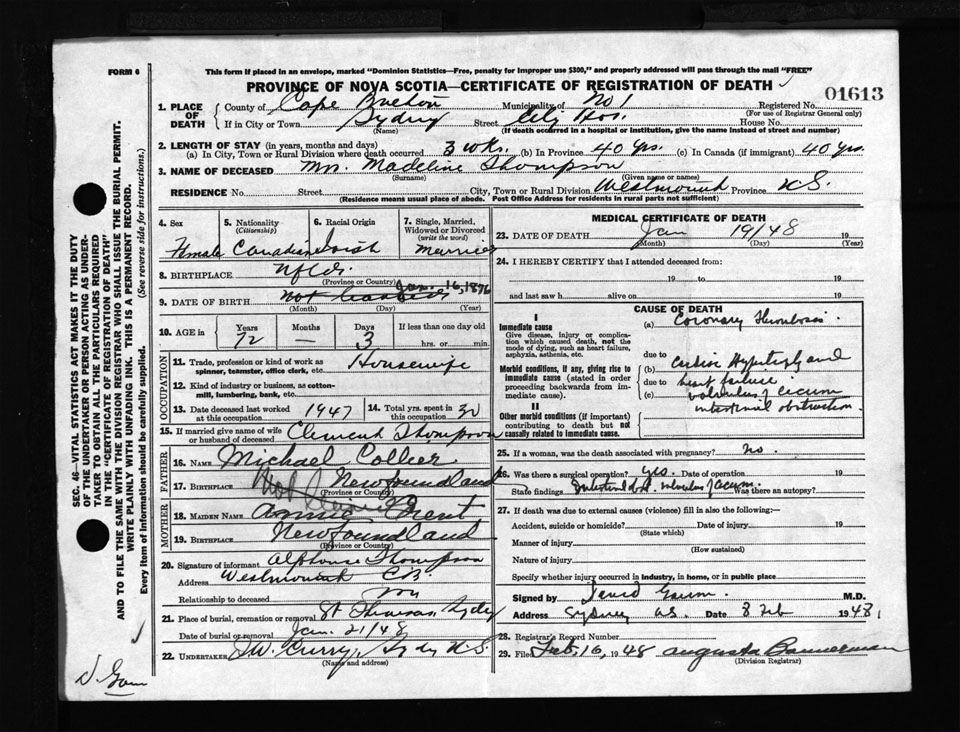 FORM 6
This form if placed in an envelope, marked "Dominion Statistics—Free, penalty for improper use $300," and properly addressed will pass through the mail "FREE"
PROVINCE OF NOVA SCOTIA—CERTIFICATE OF REGISTRATION OF DEATH
01613
1. PLACE OF DEATH County of Cape Breton Municipality of No 1 Registered No.
(For use of Registrar General only)
If in City or Town Sydney Street City Hos. House No.
(Name) (If death occurred in a hospital or institution, give the name instead of street and number)
2. LENGTH OF STAY (in years, months and days)
(a) In City, Town or Rural Division where death occurred 3 wks. (b) In Province 40 yrs. (c) In Canada (if immigrant) 40 yrs.
3. NAME OF DECEASED Mrs. Madeline Thompson
(Surname) (Given name or names)
RESIDENCE No. Street City, Town or Rural Division Westmount Province N.S.
(Residence means usual place of abode. Post Office Address for residents in rural parts not sufficient)
4. Sex 5. Nationality (Citizenship) 6. Racial Origin 7. Single, Married, Widowed or Divorced (write the word)
Female Canadian Irish Married
8. BIRTHPLACE Nfld.
(Province or Country)
Jan. 16, 1876
9. DATE OF BIRTH
(Month) (Day) (Year)
10. AGE in Years Months Days If less than one day old
72 — 3 hrs. or min.
OCCUPATION
11. Trade, profession or kind of work as spinner, teamster, office clerk, etc. Housewife
12. Kind of industry or business, as cotton-mill, lumbering, bank, etc.
13. Date deceased last worked at this occupation 1947 14. Total yrs. spent in this occupation 30
15. If married give name of wife or husband of deceased Clement Thompson
FATHER
16. NAME Michael Collier
17. BIRTHPLACE Newfoundland
(Province or Country)
MOTHER
18. MAIDEN NAME Annie
19. BIRTHPLACE Newfoundland
(Province or Country)
20. Signature of informant Alphonse Thompson
Address Westmount C.B.
Relationship to deceased Son
21. Place of burial, cremation or removal St Theresas Sydney
Date of burial or removal Jan. 21/48
22. UNDERTAKER J.W. Curry, Sydney N.S.
(Name and address)
MEDICAL CERTIFICATE OF DEATH
23. DATE OF DEATH Jan 19/48 19
(Month) (Day) (Year)
24. I HEREBY CERTIFY that I attended deceased from:
19 to 19
and last saw h alive on 19
CAUSE OF DEATH
I
Immediate cause
Give disease, injury or complication which caused death, not the mode of dying, such as heart failure, asphyxia, asthenia, etc.
(a) Coronary Thrombosis.
due to
Morbid conditions, if any, giving rise to immediate cause (stated in order proceeding backwards from immediate cause).
(b) Cardiac Hypertrophy and
due to heart failure
(c) volvulus of cecum
intestinal obstruction
II
Other morbid conditions (if important) contributing to death but not causally related to immediate cause.
25. If a woman, was the death associated with pregnancy? no.
26. Was there a surgical operation? yes. Date of operation 19
State findings Intestinal obst. volvulus of cecum. Was there an autopsy?
27. If death was due to external causes (violence) fill in also the following:—
Accident, suicide or homicide? Date of injury 19
(State which)
Manner of injury
(How sustained)
Nature of injury
Specify whether injury occurred in industry, in home, or in public place
Signed by M.D.
Address Sydney N.S. Date 8 Feb 1948
28. Registrar's Record Number
29. Filed Feb. 16, 1948 Augusta Bannerman
(Division Registrar)
SEC. 46—VITAL STATISTICS ACT MAKES IT THE DUTY
OF THE UNDERTAKER OR PERSON ACTING AS UNDERTAKER TO OBTAIN ALL THE PARTICULARS REQUIRED
IN THE "CERTIFICATE OF REGISTRATION OF DEATH"
AND TO FILE THE SAME WITH THE DIVISION REGISTRAR WHO SHALL ISSUE THE BURIAL PERMIT.
WRITE PLAINLY WITH UNFADING INK. THIS IS A PERMANENT RECORD.
Every item of information should be carefully supplied. (See reverse side for instructions.)